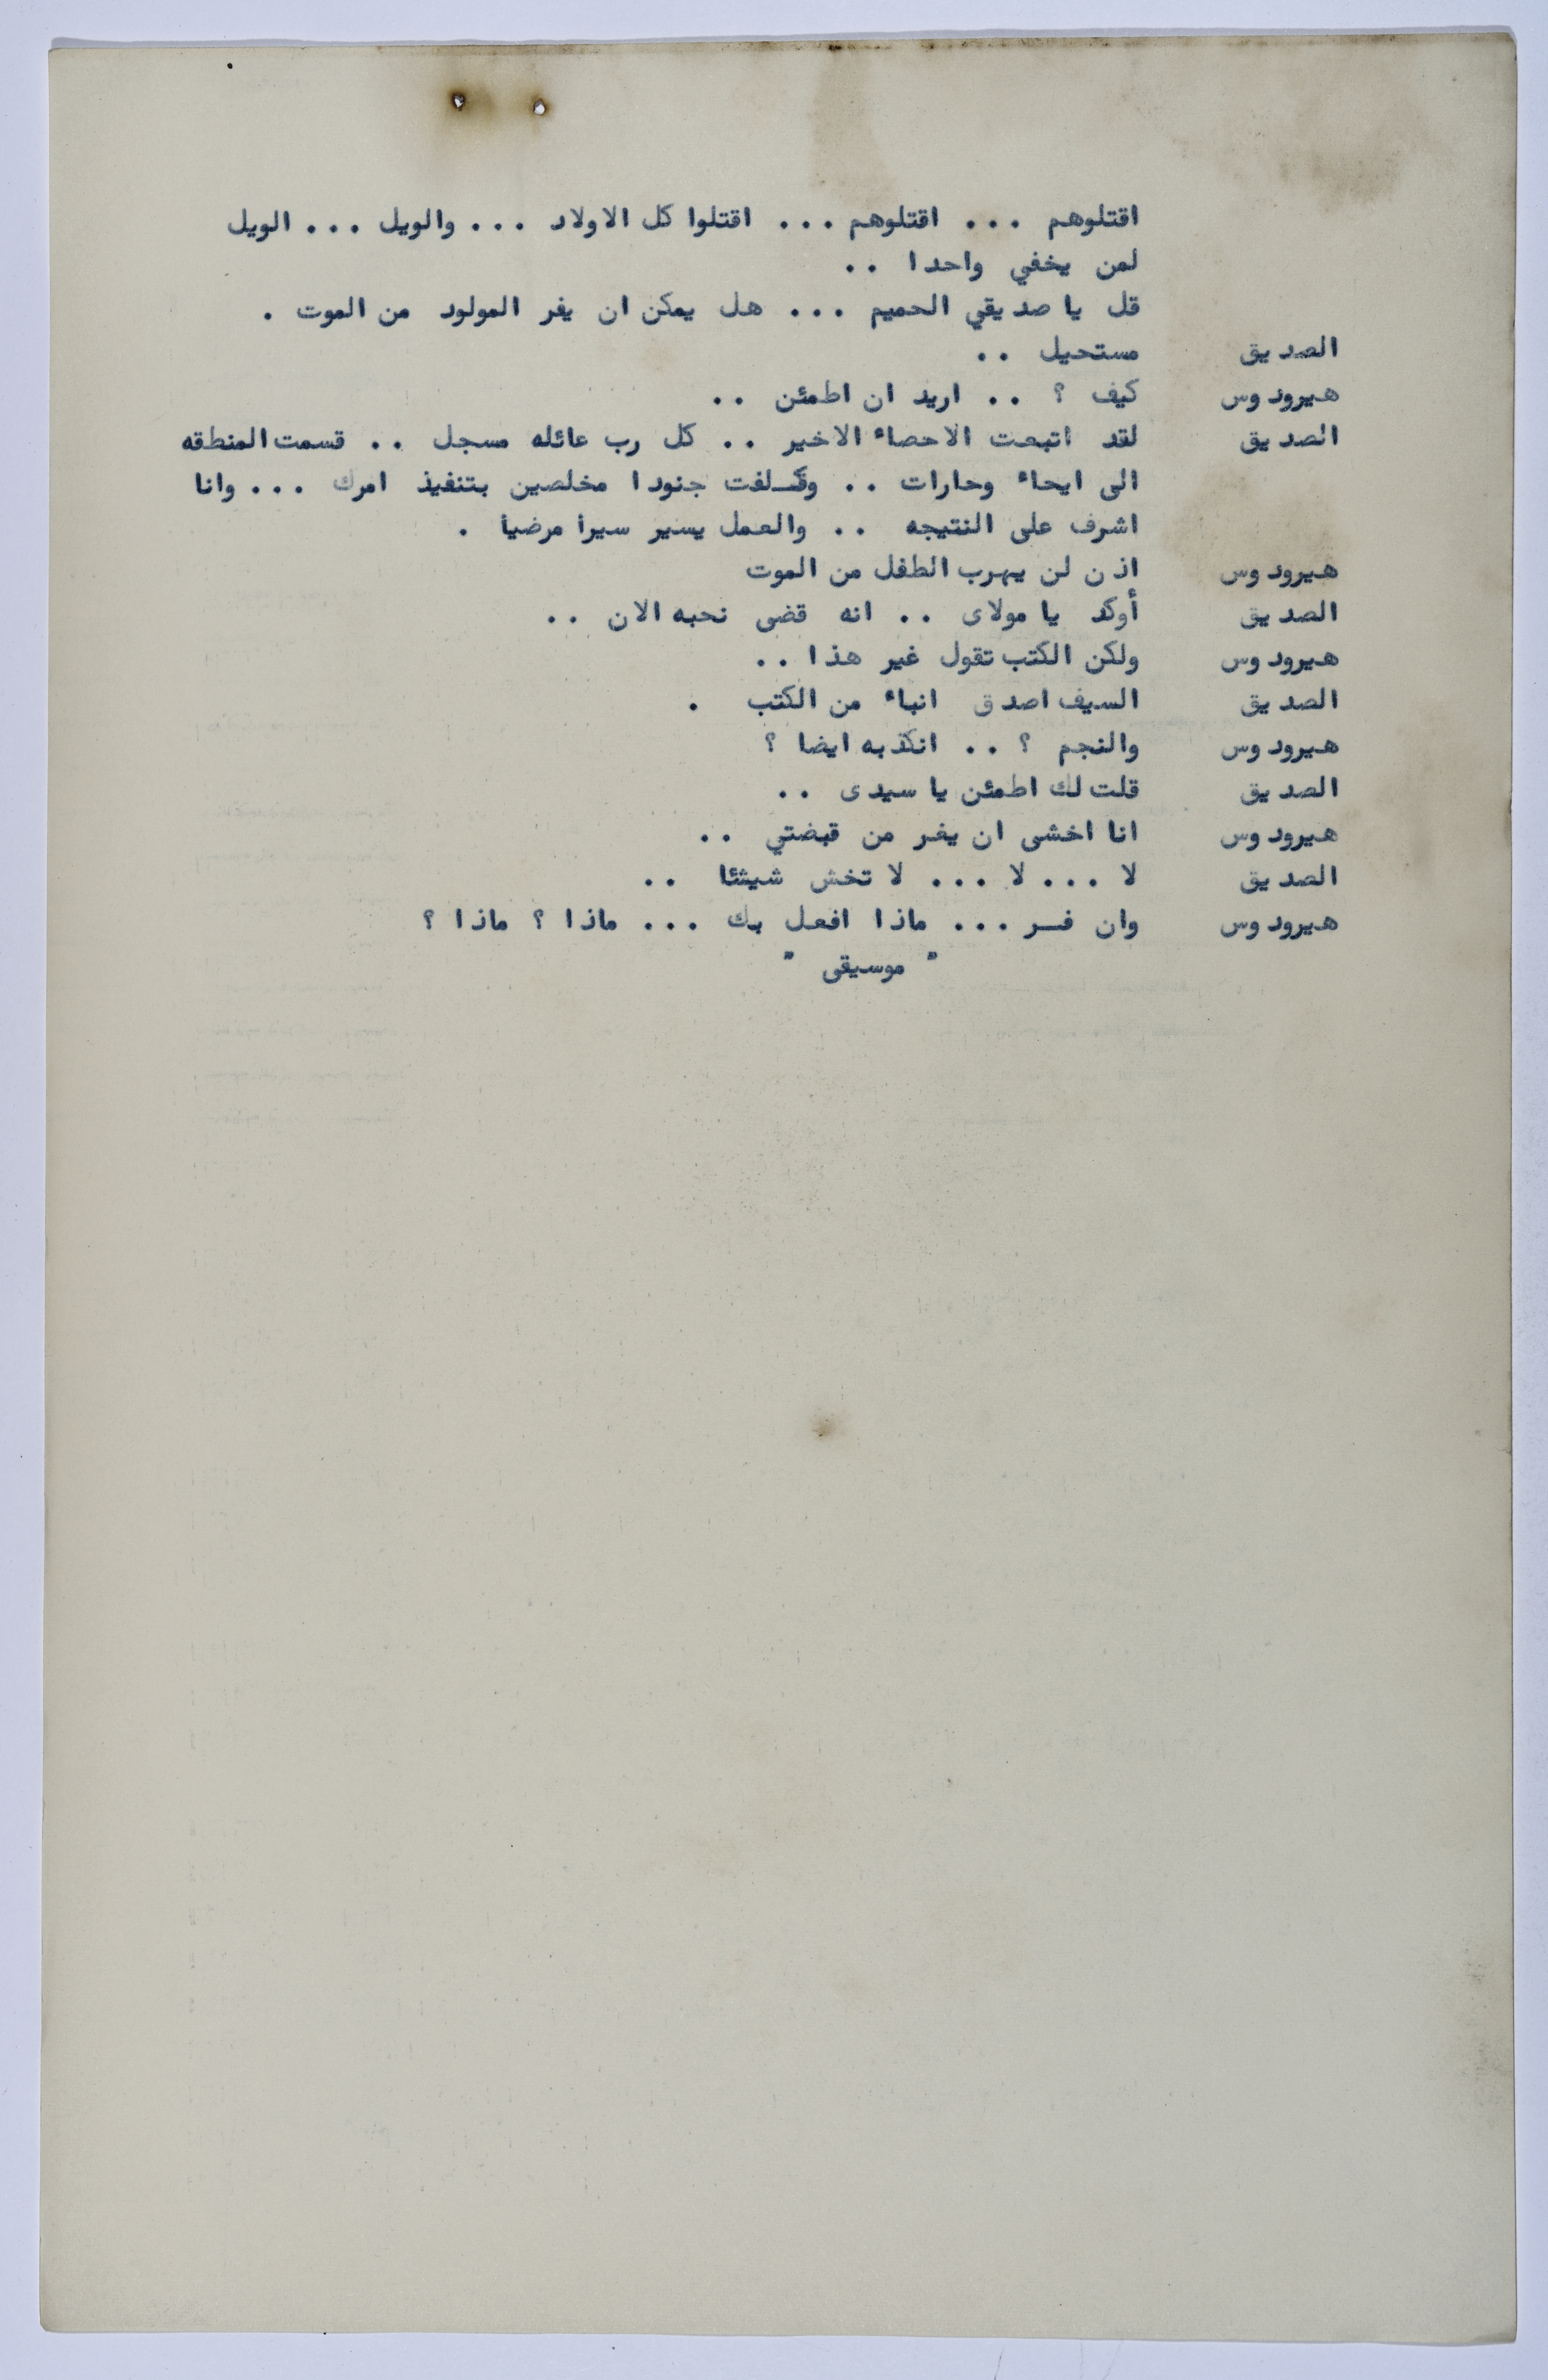 اقتلوهم ... اقتلوهم ... اقتلوا كل الاولاد ... والويل ... الويل
لمن يخفي واحدا ..
قل يا صديقي الحميم ... هل يمكن ان يفر المولود من الموت .
الصديق مستحيل ..
هيرودوس كيف ؟ .. اريد ان اطمئن ..
الصديق لقد اتبعت الاحصاء الاخير .. كل رب عائله مسجل .. قسمت المنطقه
الى ايحاء وحارات .. وكلفت جنودا مخلصين بتنفيذ امرك ... وانا
اشرف على النتيجه .. والعمل يسير سيرا مرضيا .
هيرودوس اذن لن يهرب الطفل من الموت
الصديق أوكد يا مولاى .. انه قضى نحبه الان ..
هيرودوس ولكن الكتب تقول غير هذا ..
الصديق السيف اصدق انباء من الكتب .
هيرودوس والنجم ؟ .. انكذبه ايضا ؟
الصديق قلت لك اطمئن يا سيدى ..
هيرودوس انا اخشى ان يفر من قبضتي ..
الصديق لا ... لا ... لا تخش شيئا ..
هيرودوس وان فـر ... ماذا افعل بك ... ماذا ؟ ماذا ؟
" موسيقى "